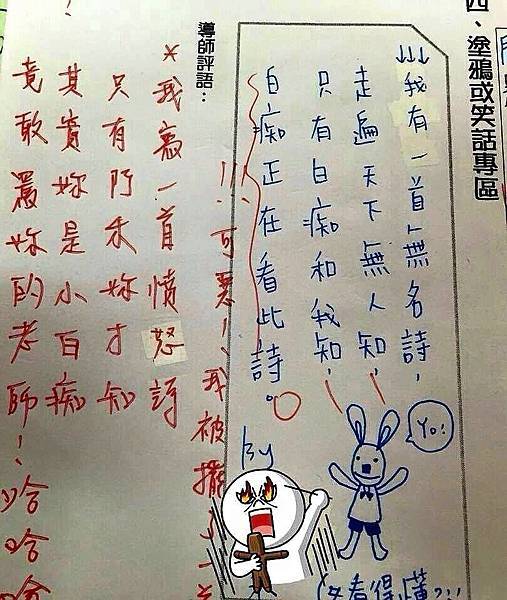 四、塗鴉或笑話專區
↓↓↓我有一首無名詩，
走遍天下無人知，
只有白痴和我知，
白痴正在看此詩。
by
Yo!
看得懂?!
導師評語：
!!!可惡！我被擺了一
*我寫一首憤怒詩
只有阿禾妳才知
其實妳是小白痴
竟敢罵妳的老師！哈哈哈